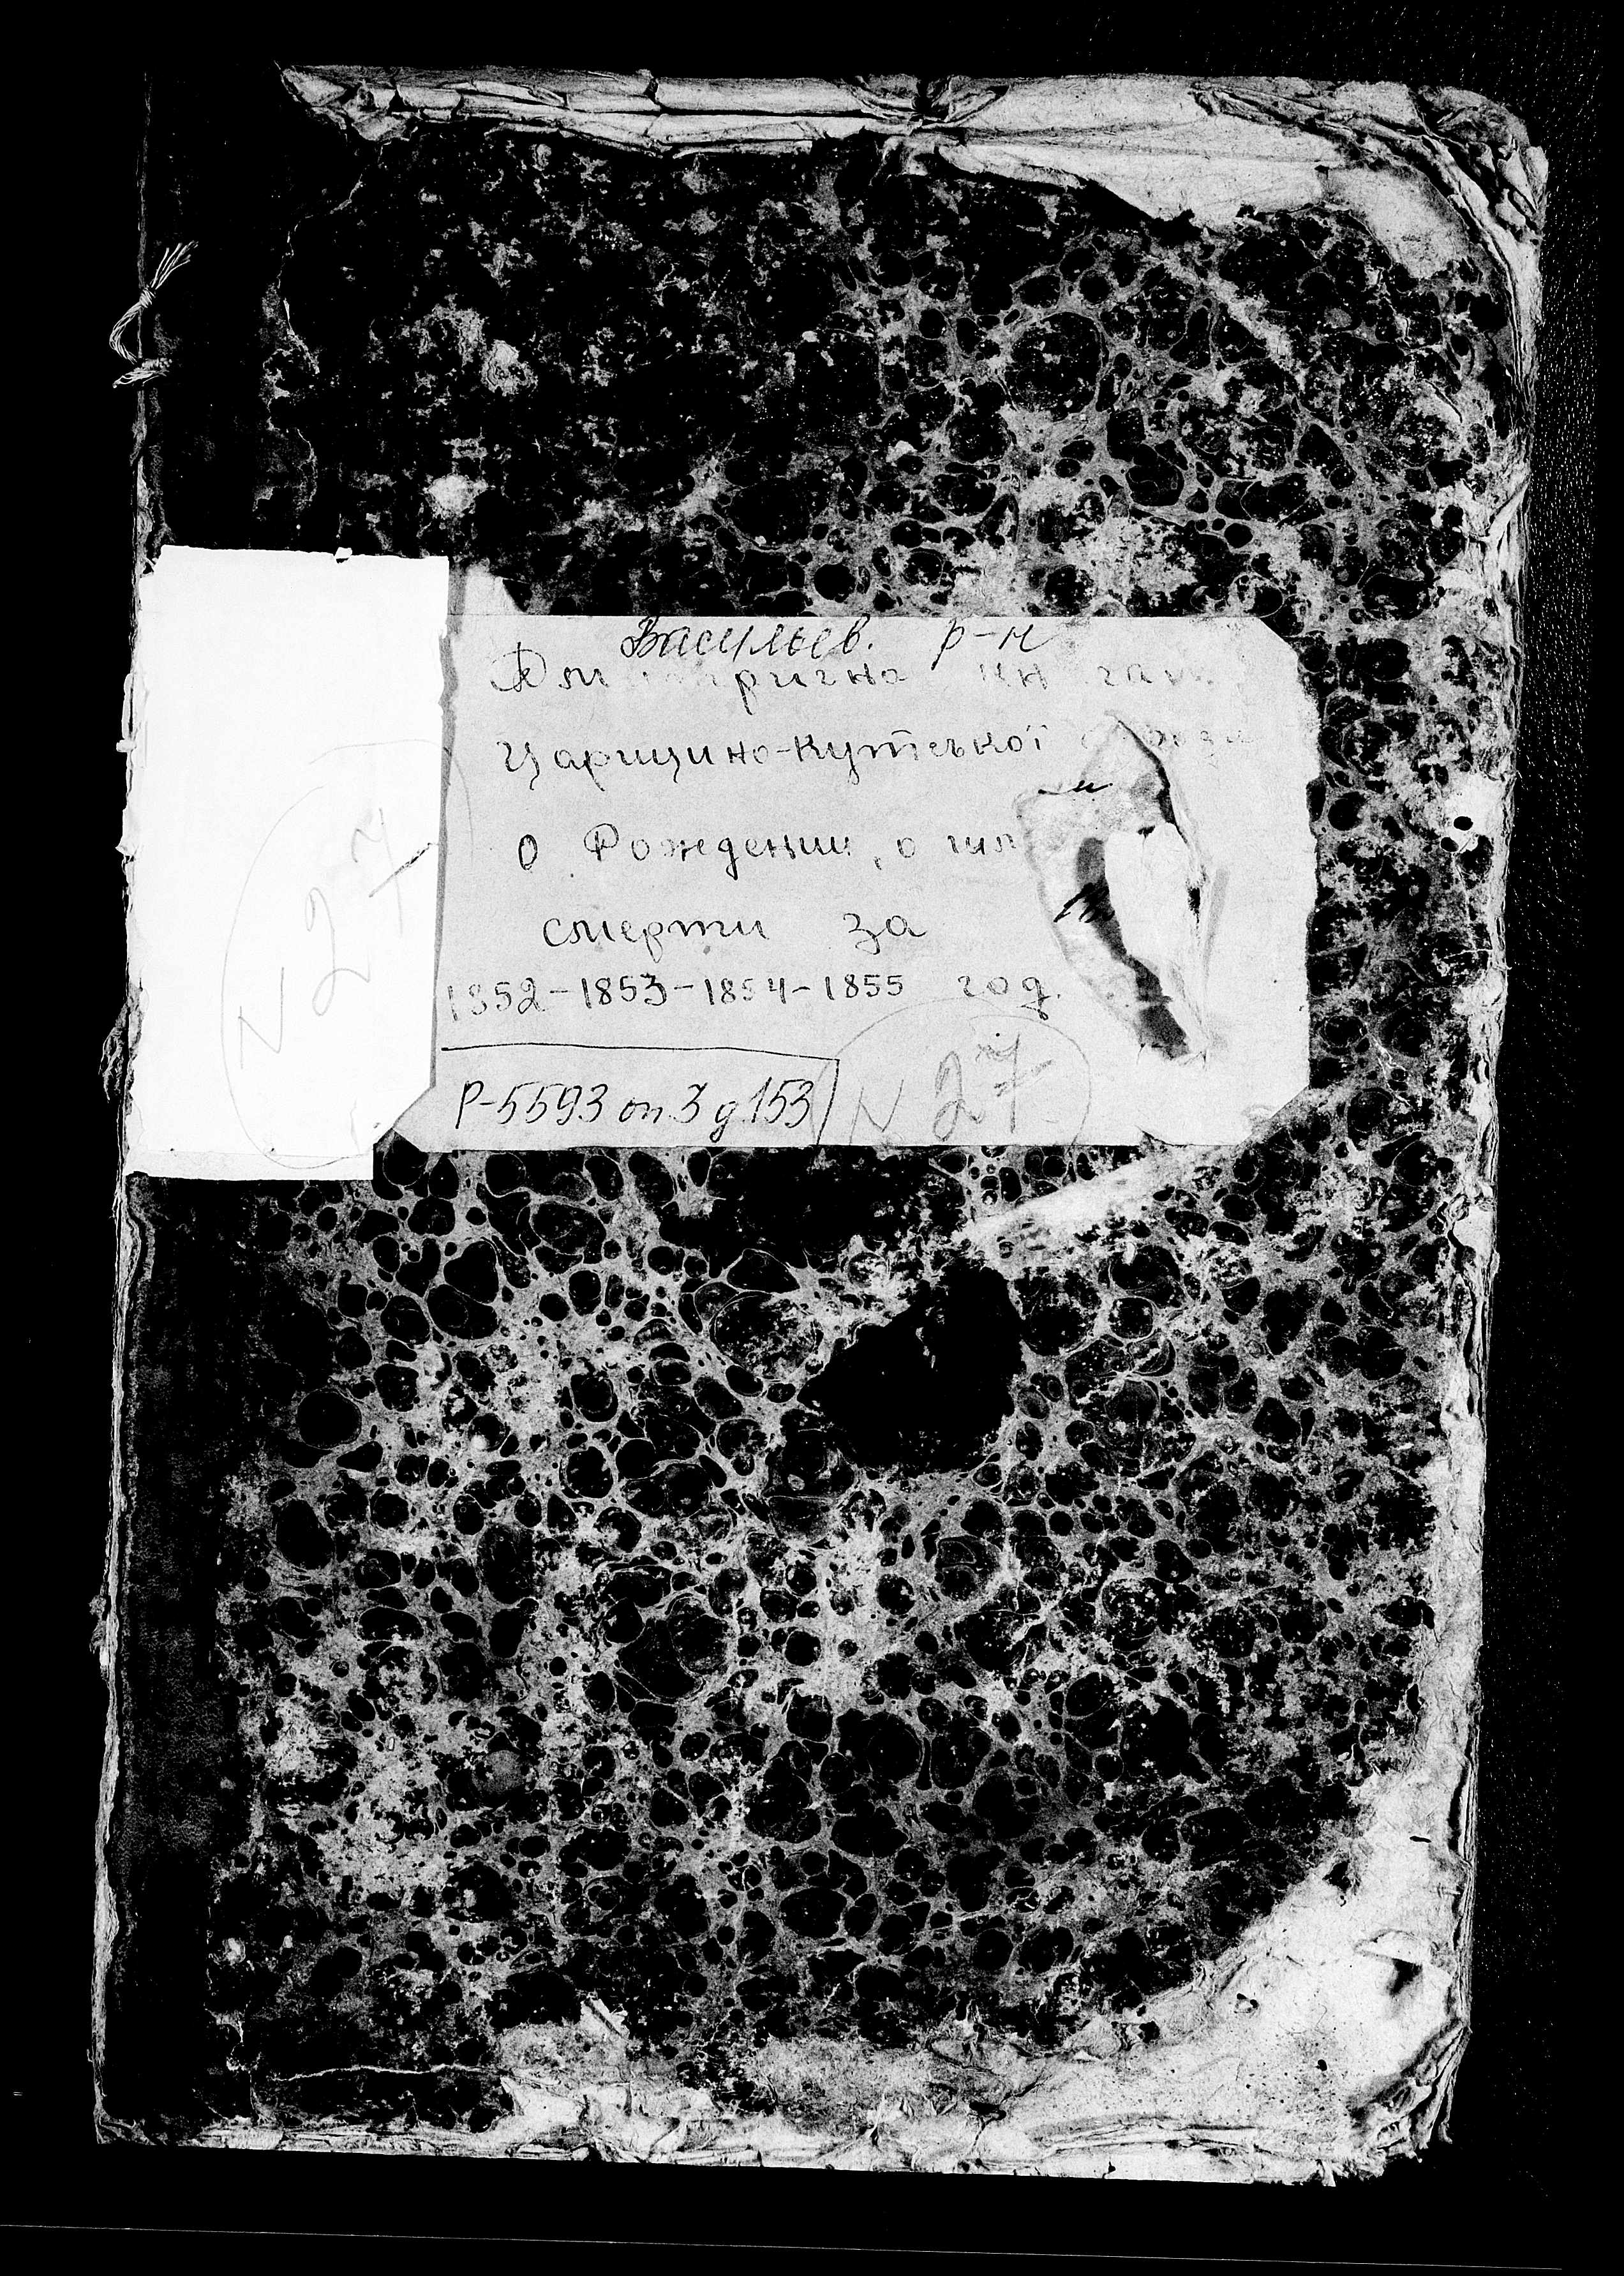 Васильев. р-н
Царицино-Кутської
О Рождении, о
смерти за
1852-1853-1854-1855 год.
Р-5593 оп.3 д.153
N 27
N 27